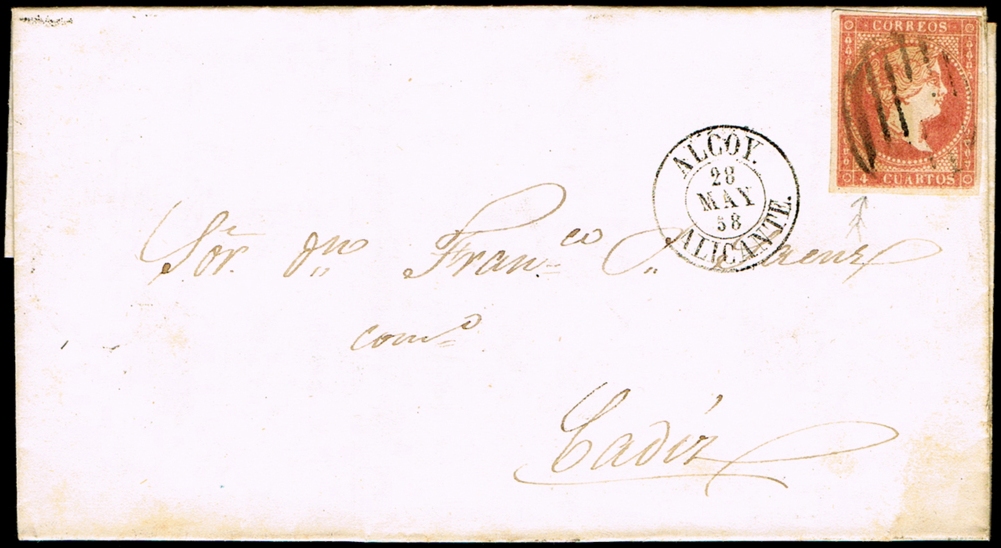 CORREOS
4 CUARTOS
ALCOY.
28
MAY
58
ALICANTE.
Sōr. Dn Fran.co
com.o
Cadiz